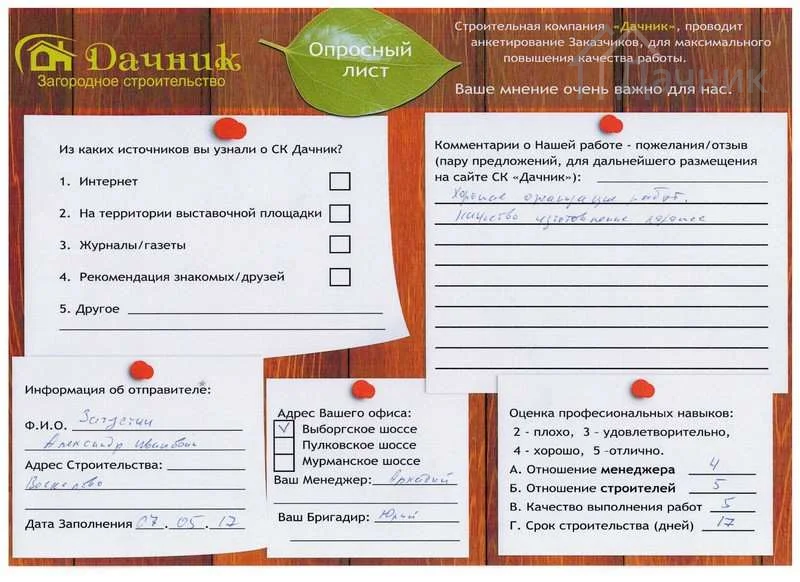 Дачник
Загородное строительство
Опросный
лист
Строительная компания «Дачник», проводит
анкетирование Заказчиков, для максимального
повышения качества работы.
Ваше мнение очень важно для нас.
Дачник
Из каких источников вы узнали о СК Дачник?
1. Интернет
2. На территории выставочной площадки
3. Журналы/газеты
4. Рекомендация знакомых/друзей
5. Другое
Комментарии о Нашей работе - пожелания/отзыв
(пару предложений, для дальнейшего размещения
на сайте СК «Дачник»):
Хорошие организация работ.
Качество изготовления хорошее
Информация об отправителе:
Ф.И.О.
Александр Иванович
Адрес Строительства:
Дата Заполнения 07.05.17
Адрес Вашего офиса:
Выборгское шоссе
Пулковское шоссе
Мурманское шоссе
Ваш Менеджер: Аркадий
Ваш Бригадир: Юрий
Оценка професиональных навыков:
2 - плохо, 3 - удовлетворительно,
4 - хорошо, 5 -отлично.
А. Отношение менеджера 4
Б. Отношение строителей 5
В. Качество выполнения работ 5
Г. Срок строительства (дней) 17